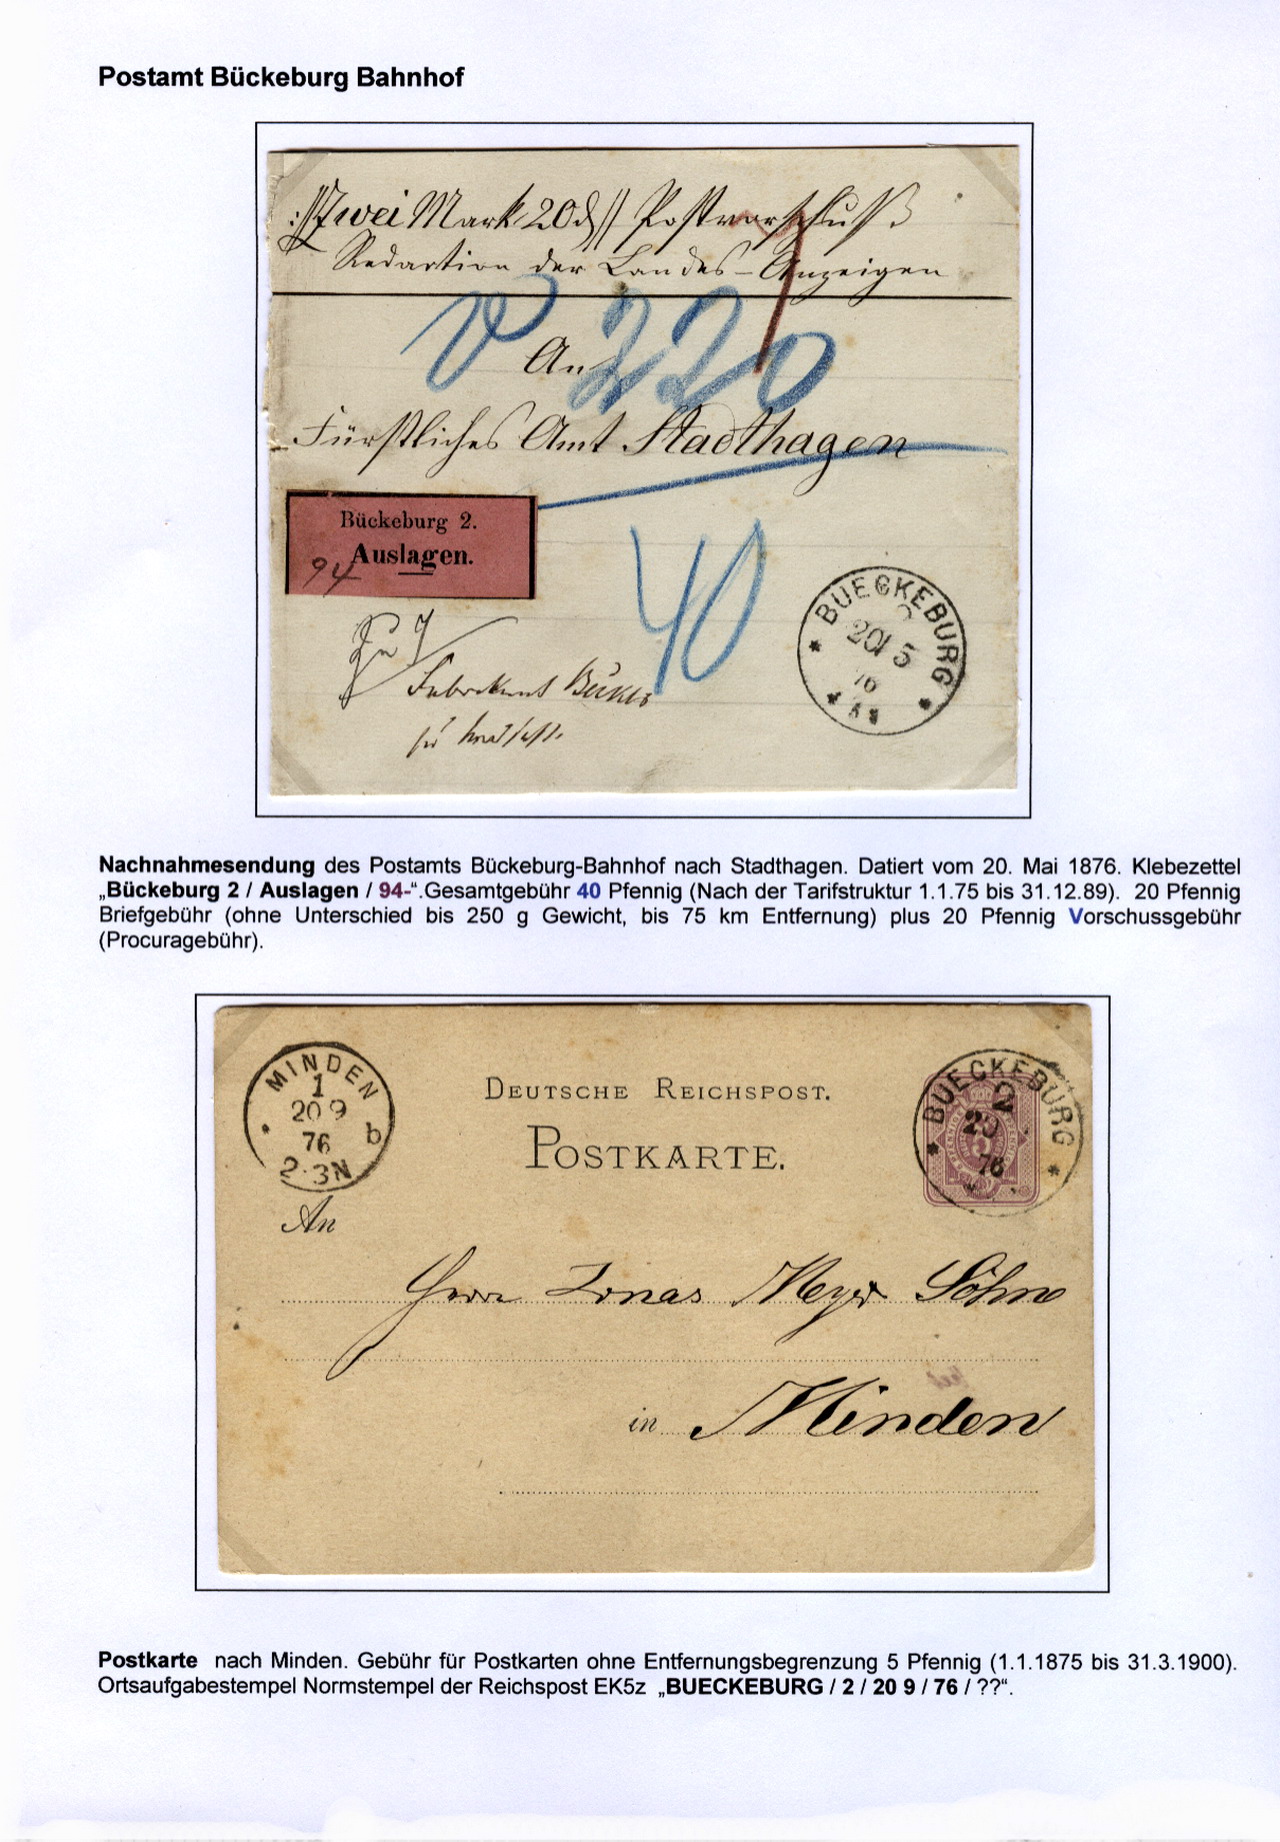 Postamt Bückeburg Bahnhof
Zwei Mark 20 Postvorschuß.
Redaction der Landes-Anzeigen
V 220
An
Fürstliches Amt Stadthagen
Bückeburg 2.
Auslagen.
94
40
BUECKEBURG
2
20 5
76
Nachnahmesendung des Postamts Bückeburg-Bahnhof nach Stadthagen. Datiert vom 20. Mai 1876. Klebezettel
„Bückeburg 2 / Auslagen / 94-“.Gesamtgebühr 40 Pfennig (Nach der Tarifstruktur 1.1.75 bis 31.12.89). 20 Pfennig
Briefgebühr (ohne Unterschied bis 250 g Gewicht, bis 75 km Entfernung) plus 20 Pfennig Vorschussgebühr
(Procuragebühr).
MINDEN
1
20 9
76 b
2-3N
DEUTSCHE REICHSPOST.
POSTKARTE.
BUECKEBURG
2
20
76
An
Herrn Jonas Meyer Söhne
in Minden
Postkarte nach Minden. Gebühr für Postkarten ohne Entfernungsbegrenzung 5 Pfennig (1.1.1875 bis 31.3.1900).
Ortsaufgabestempel Normstempel der Reichspost EK5z „BUECKEBURG / 2 / 20 9 / 76 / ??“.